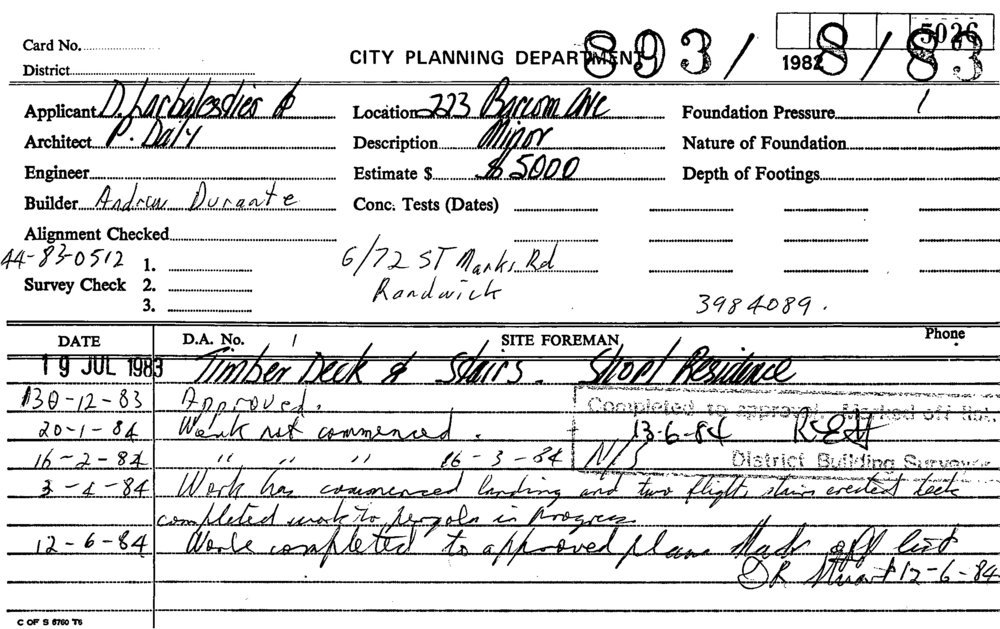 5026
Card No.
CITY PLANNING DEPARTMENT 893/ 1982 8/83
District
Applicant D. Larbalestier & Location 223 Barcom Ave Foundation Pressure /
Architect P. Daly Description Minor Nature of Foundation
Engineer Estimate $ $5000 Depth of Footings
Builder Andrew Durante Conc. Tests (Dates)
Alignment Checked
44-83-0512 1. 6/72 ST Marks Rd
Survey Check 2. Randwick
3. 3984089.
DATE D.A. No. SITE FOREMAN Phone
19 JUL 1983 Timber Deck & Stairs. Residence
30-12-83 Approved. Completed to approval. Marked off list.
20-1-84 Work not commenced. 13-6-84
16-2-84 " " " 16-3-84 N/S District Building Surveyor
3-4-84 Work has commenced landing and two flights stairs erected deck
completed work to pergola in progress
12-6-84 Work completed to approved plans Mark off list
DR Stuart 12-6-84
C OF S 6760 T6